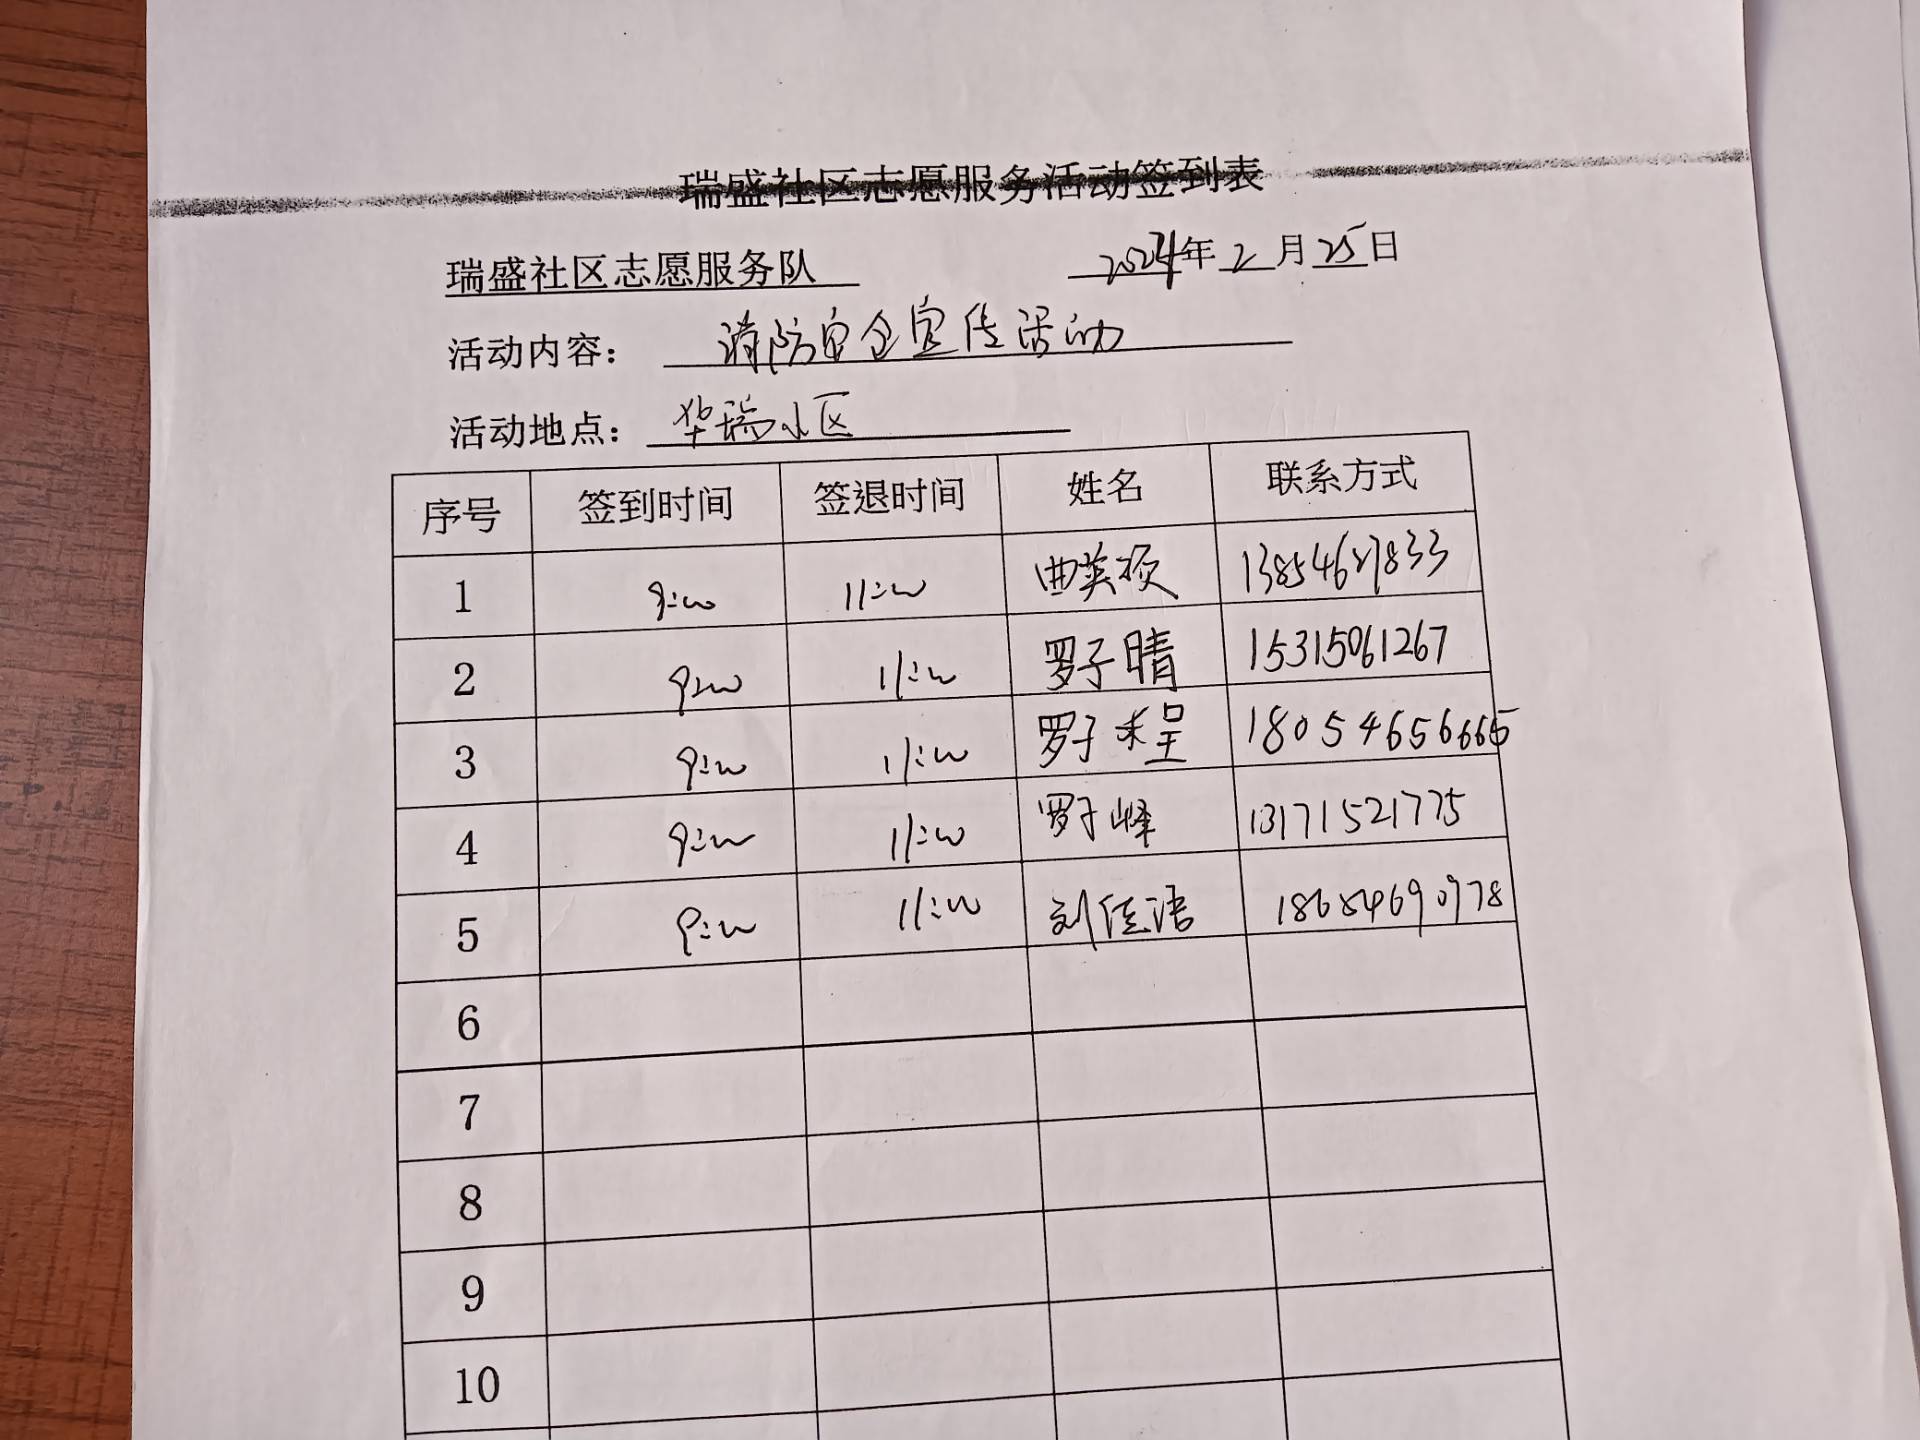 瑞盛社区志愿服务活动签到表
瑞盛社区志愿服务队 2024年2月25日
活动内容： 消防安全宣传活动
活动地点： 华瑞小区
序号 签到时间 签退时间 姓名 联系方式
1 9:00 11:00 曲英 13854687833
2 9:00 11:00 罗子晴 15315061267
3 9:00 11:00 罗子程 18054656665
4 9:00 11:00 罗子峰 13171521775
5 9:00 11:00 刘佳浩 18654690978
6
7
8
9
10